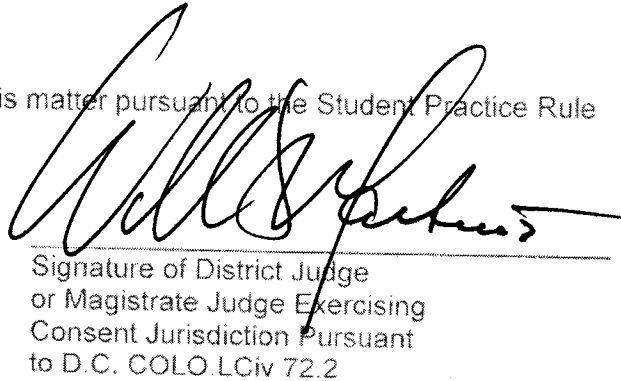 is matter pursuant to the Student Practice Rule
Signature of District Judge
or Magistrate Judge Exercising
Consent Jurisdiction Pursuant
to D.C. COLO.LCiv 72.2